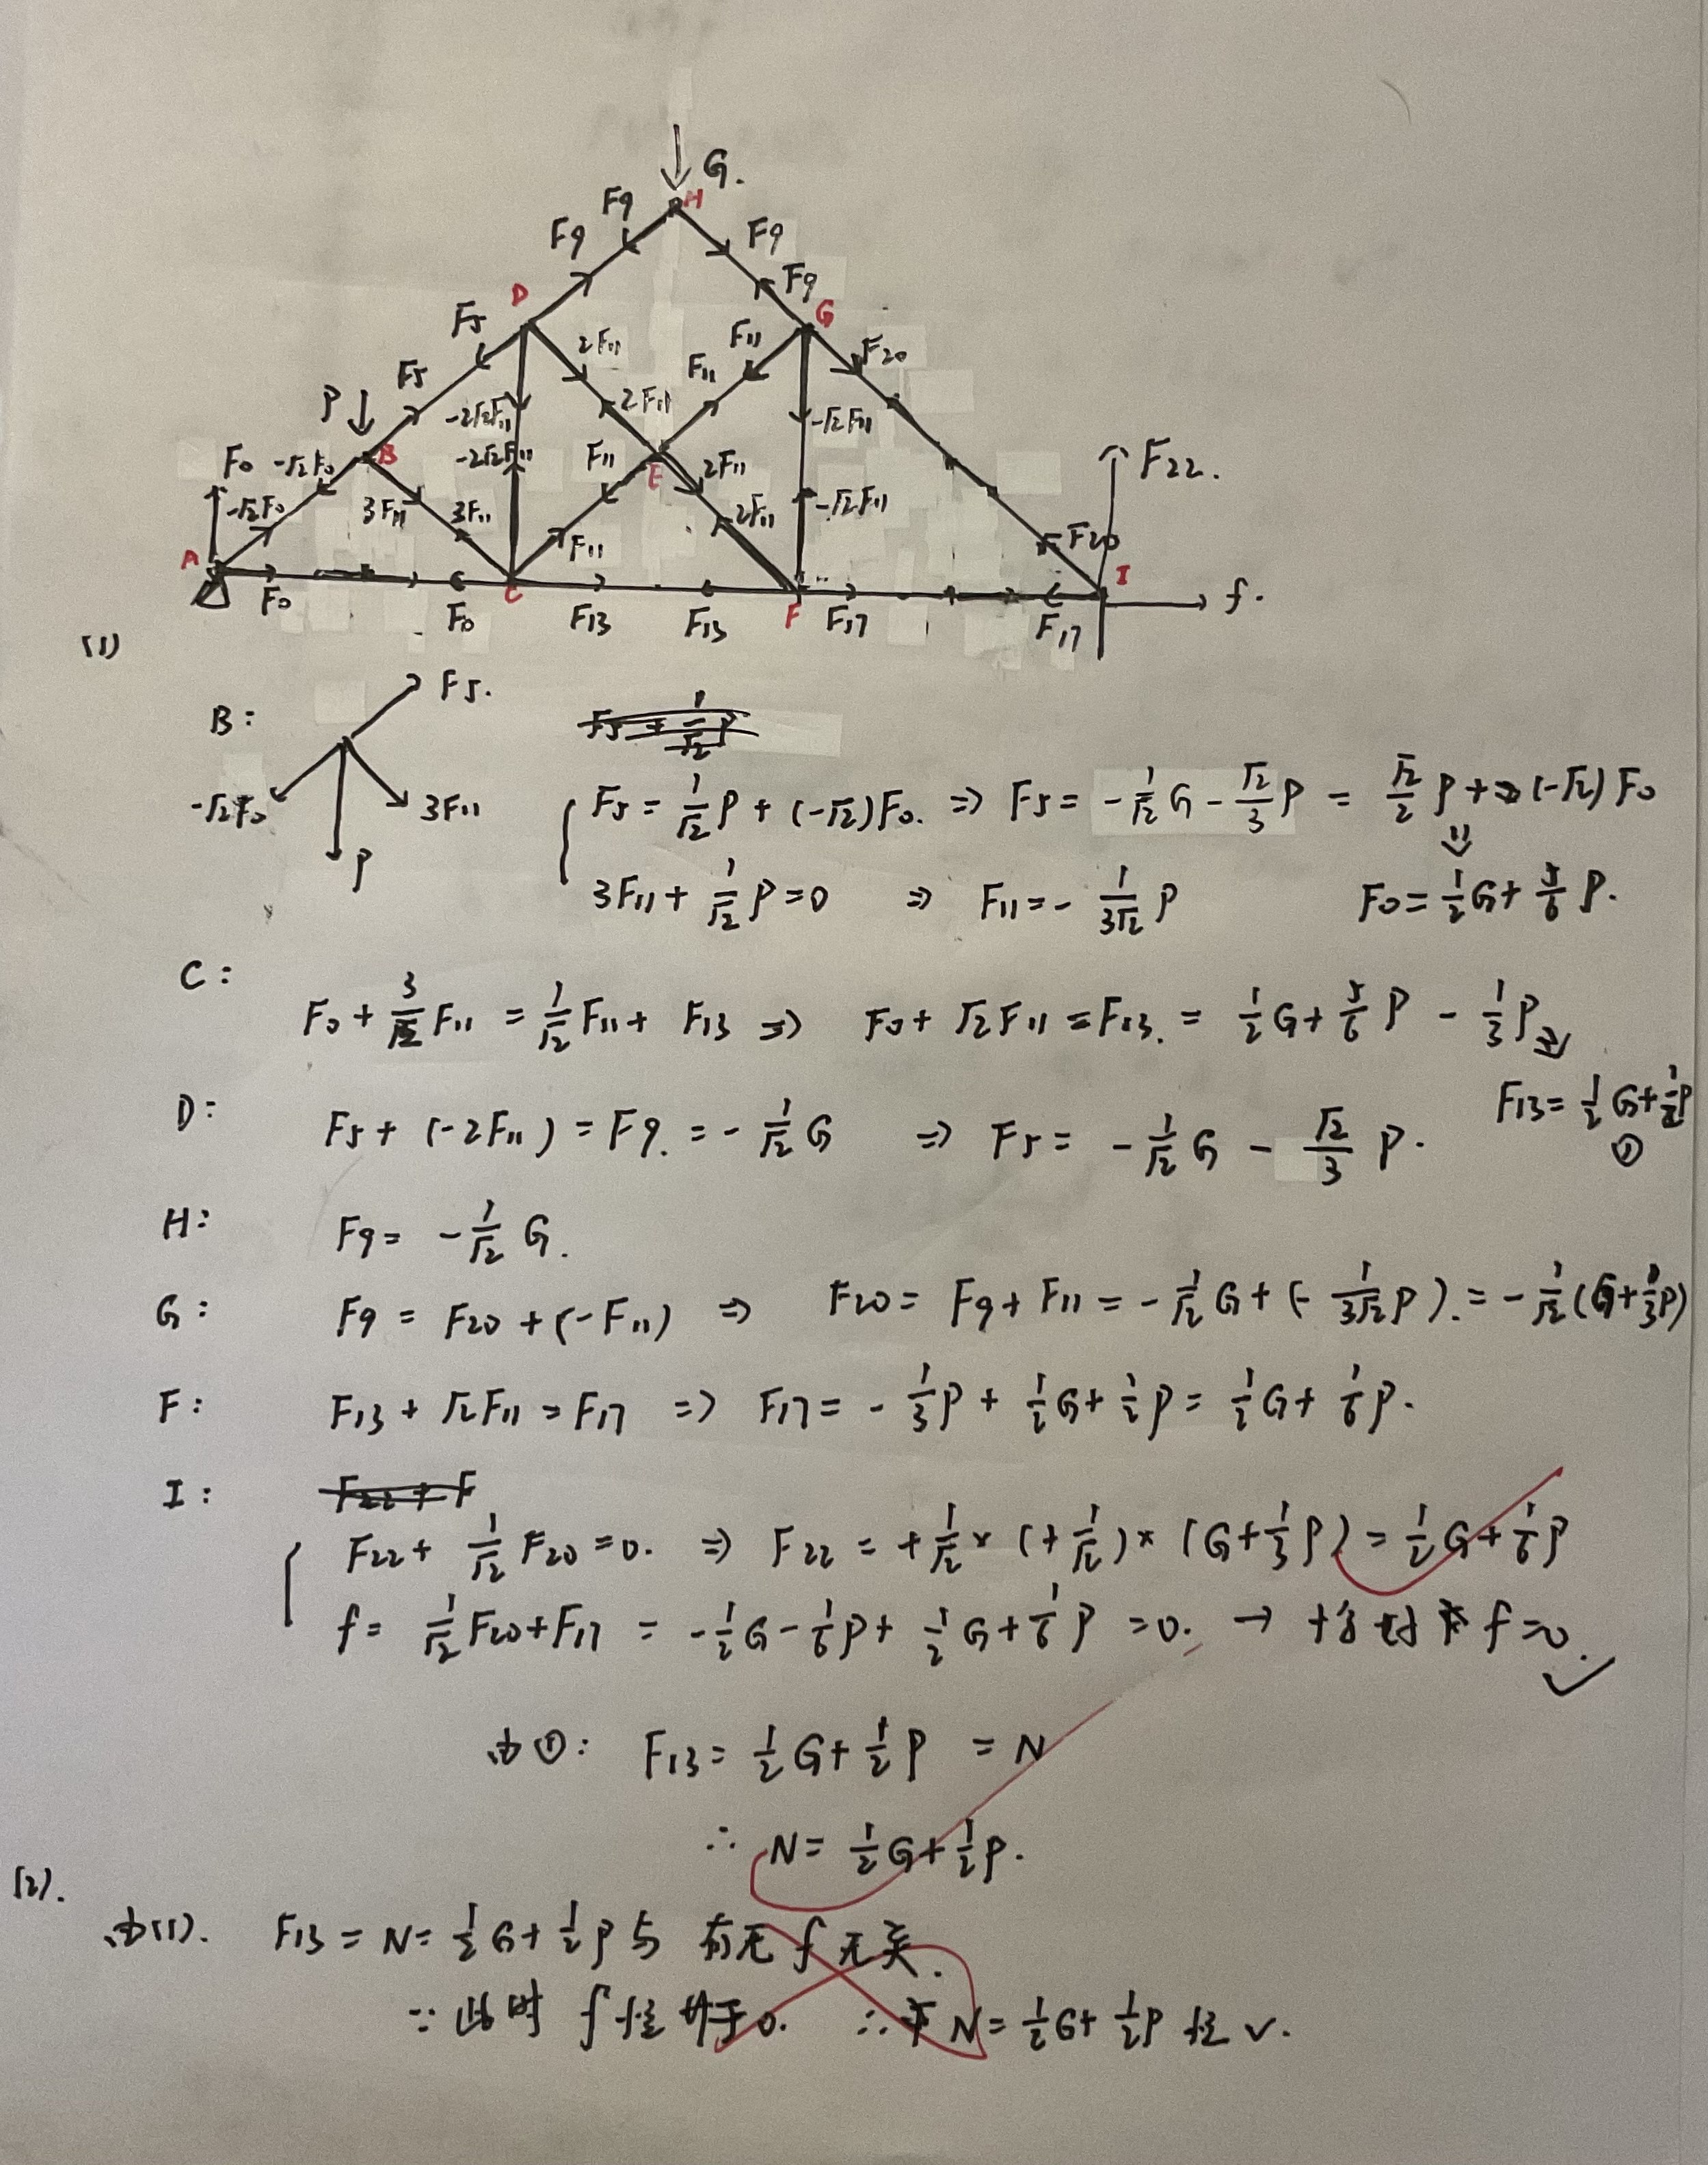 G.
H
F9
F9
F9
F9
D
G
F5
2F11
F11
F20
F5
F11
P
2F11
-2√2F11
-√2F11
B
F0
-√2F0
-2√2F11
F11
E
2F11
F22.
-√2F0
3F11
3F11
2F11
-√2F11
F20
A
F11
I
F0
C
F
f.
F0
F13
F13
F17
F17
(1)
B:
F5.
-√2F0
3F11
P
F5 = 1/√2 P + (-√2)F0. ⇒ F5 = -1/√2 G - √2/3 P = √2/2 P + (-√2) F0
3F11 + 1/√2 P = 0 ⇒ F11 = - 1/3√2 P
⇓
F0 = 1/2 G + 5/6 P.
C:
F0 + 3/√2 F11 = 1/√2 F11 + F13 ⇒ F0 + √2 F11 = F13. = 1/2 G + 5/6 P - 1/3 P ⇒
F13 = 1/2 G + 1/2 P
①
D:
F5 + (-2F11) = F9. = -1/√2 G ⇒ F5 = -1/√2 G - √2/3 P.
H:
F9 = -1/√2 G.
G:
F9 = F20 + (-F11) ⇒ F20 = F9 + F11 = -1/√2 G + (- 1/3√2 P). = -1/√2 (G + 1/3 P)
F:
F13 + √2 F11 = F17 ⇒ F17 = - 1/3 P + 1/2 G + 1/2 P = 1/2 G + 1/6 P.
I:
F22 + 1/√2 F20 = 0. ⇒ F22 = + 1/√2 × (+ 1/√2) × (G + 1/3 P) = 1/2 G + 1/6 P
f = 1/√2 F20 + F17 = -1/2 G - 1/6 P + 1/2 G + 1/6 P = 0. → f = 0.
由①: F13 = 1/2 G + 1/2 P = N
∴ N = 1/2 G + 1/2 P.
(2).
由(1). F13 = N = 1/2 G + 1/2 P 与 有无 f 无关.
∵ 此时 f 恒等于 0. ∴ N = 1/2 G + 1/2 P 恒